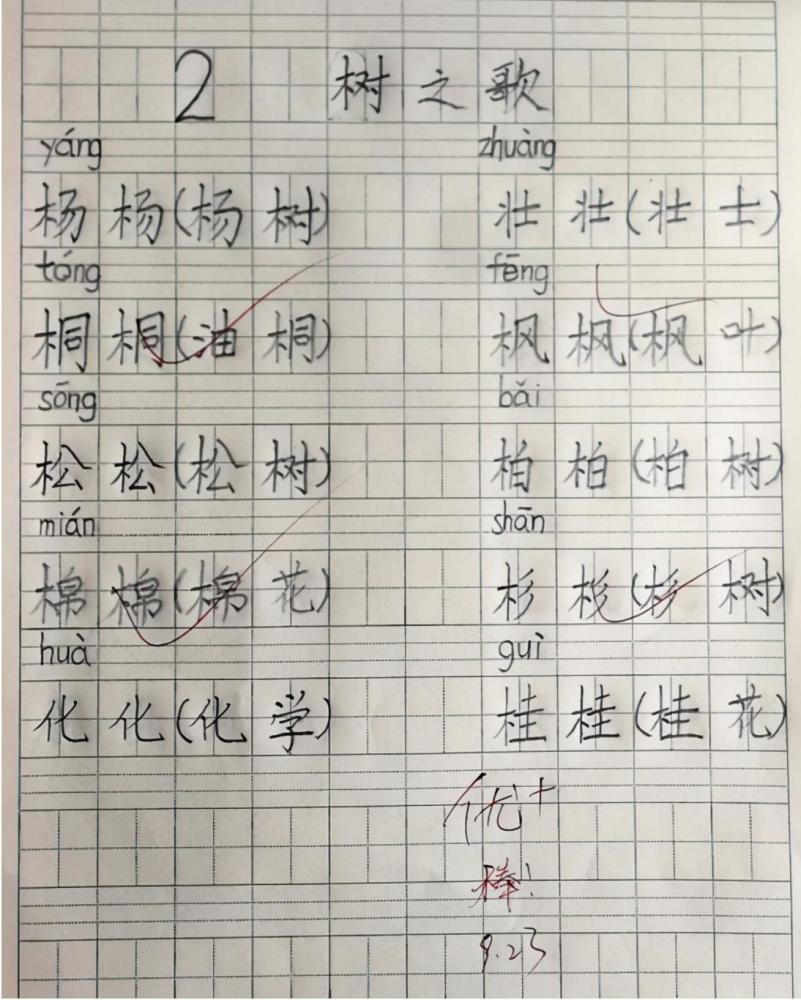 2 树之歌
yáng zhuàng
杨 杨(杨 树) 壮 壮(壮 士)
tóng fēng
桐 桐(油 桐) 枫 枫(枫 叶)
sōng bǎi
松 松(松 树) 柏 柏(柏 树)
mián shān
棉 棉(棉 花) 杉 杉(杉 树)
huà guì
化 化(化 学) 桂 桂(桂 花)
优+
棒!
9.23